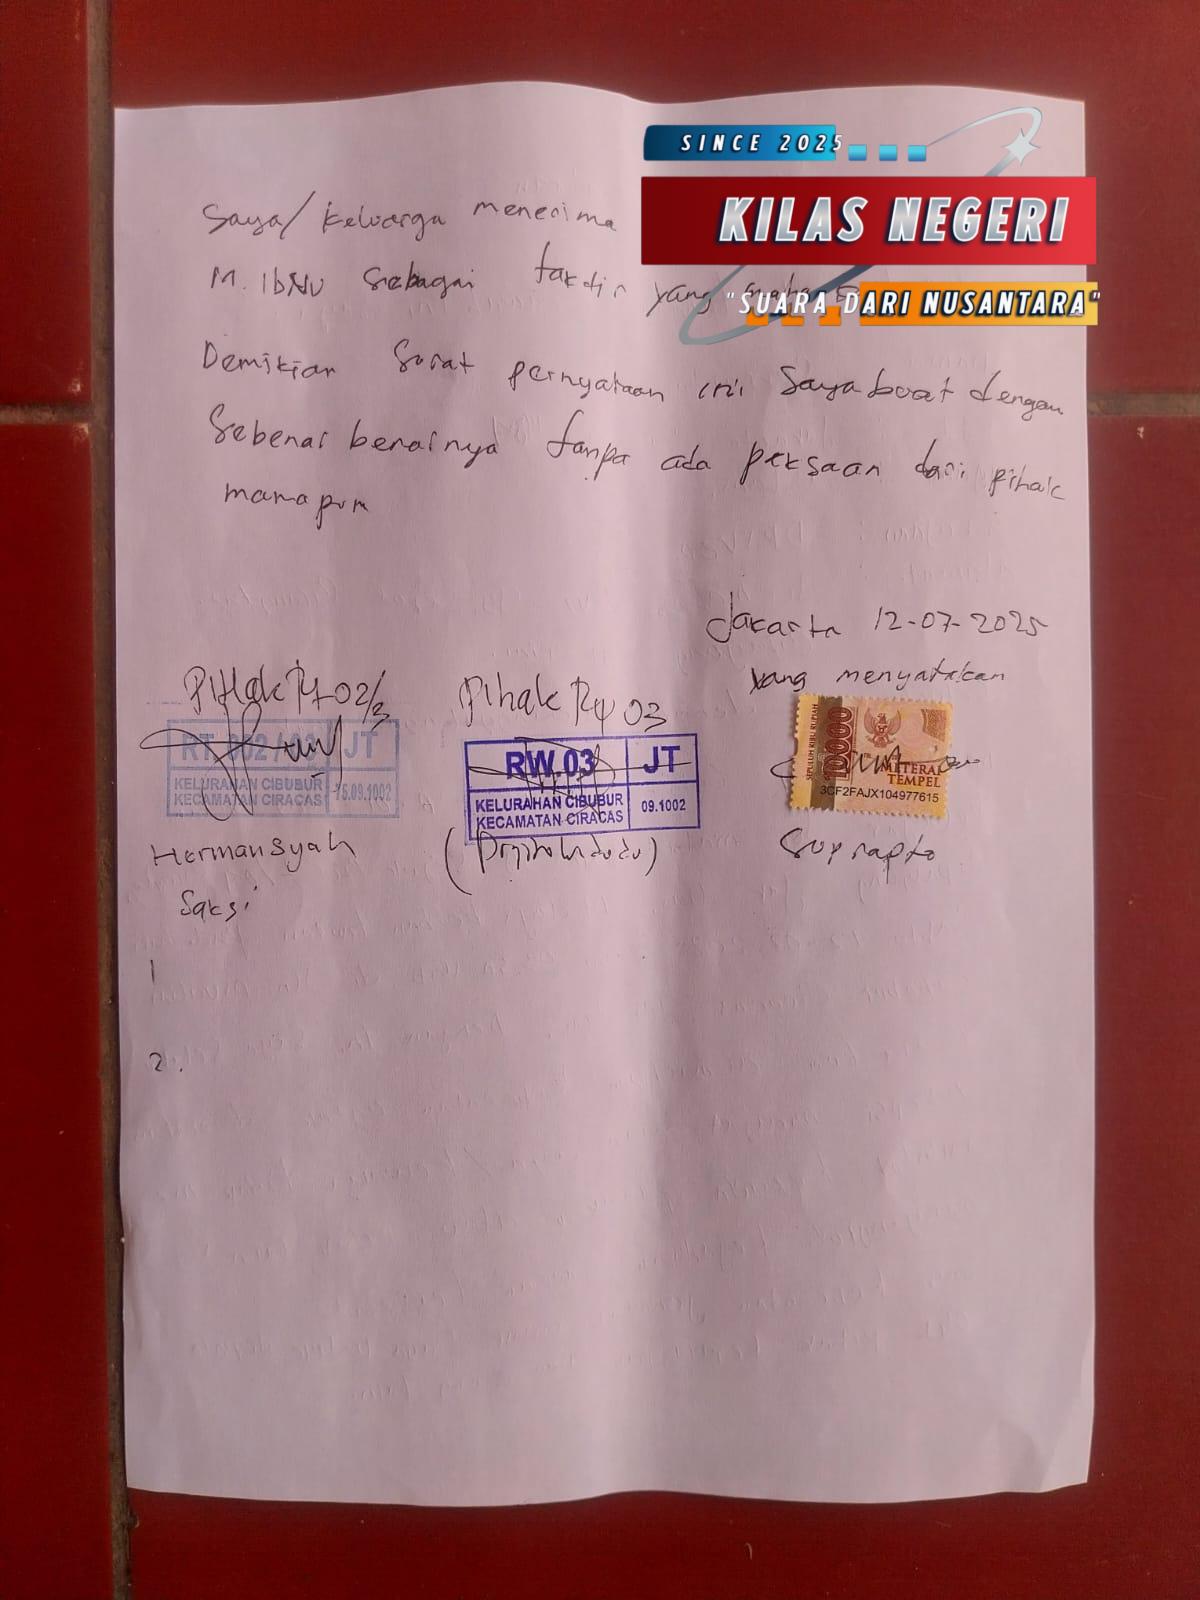 SINCE 2025
KILAS NEGERI
"SUARA DARI NUSANTARA"
Saya/keluarga menerima
M. Ibnu sebagai takdir yang
Demikian Surat pernyataan ini Saya buat dengan
Sebenar benarnya tanpa ada paksaan dari pihak
manapun
Jakarta 12-07-2025
yang menyatakan
Pihak Rt 02/3
Pihak RW 03
RT. 002 / 03 JT
KELURAHAN CIBUBUR
KECAMATAN CIRACAS
09.1002
RW.03 JT
KELURAHAN CIBUBUR
KECAMATAN CIRACAS
09.1002
SEPULUH RIBU RUPIAH
10000
METERAI
TEMPEL
3CF2FAJX104977615
Hermansyah
Suprapto
Saksi
1
2.